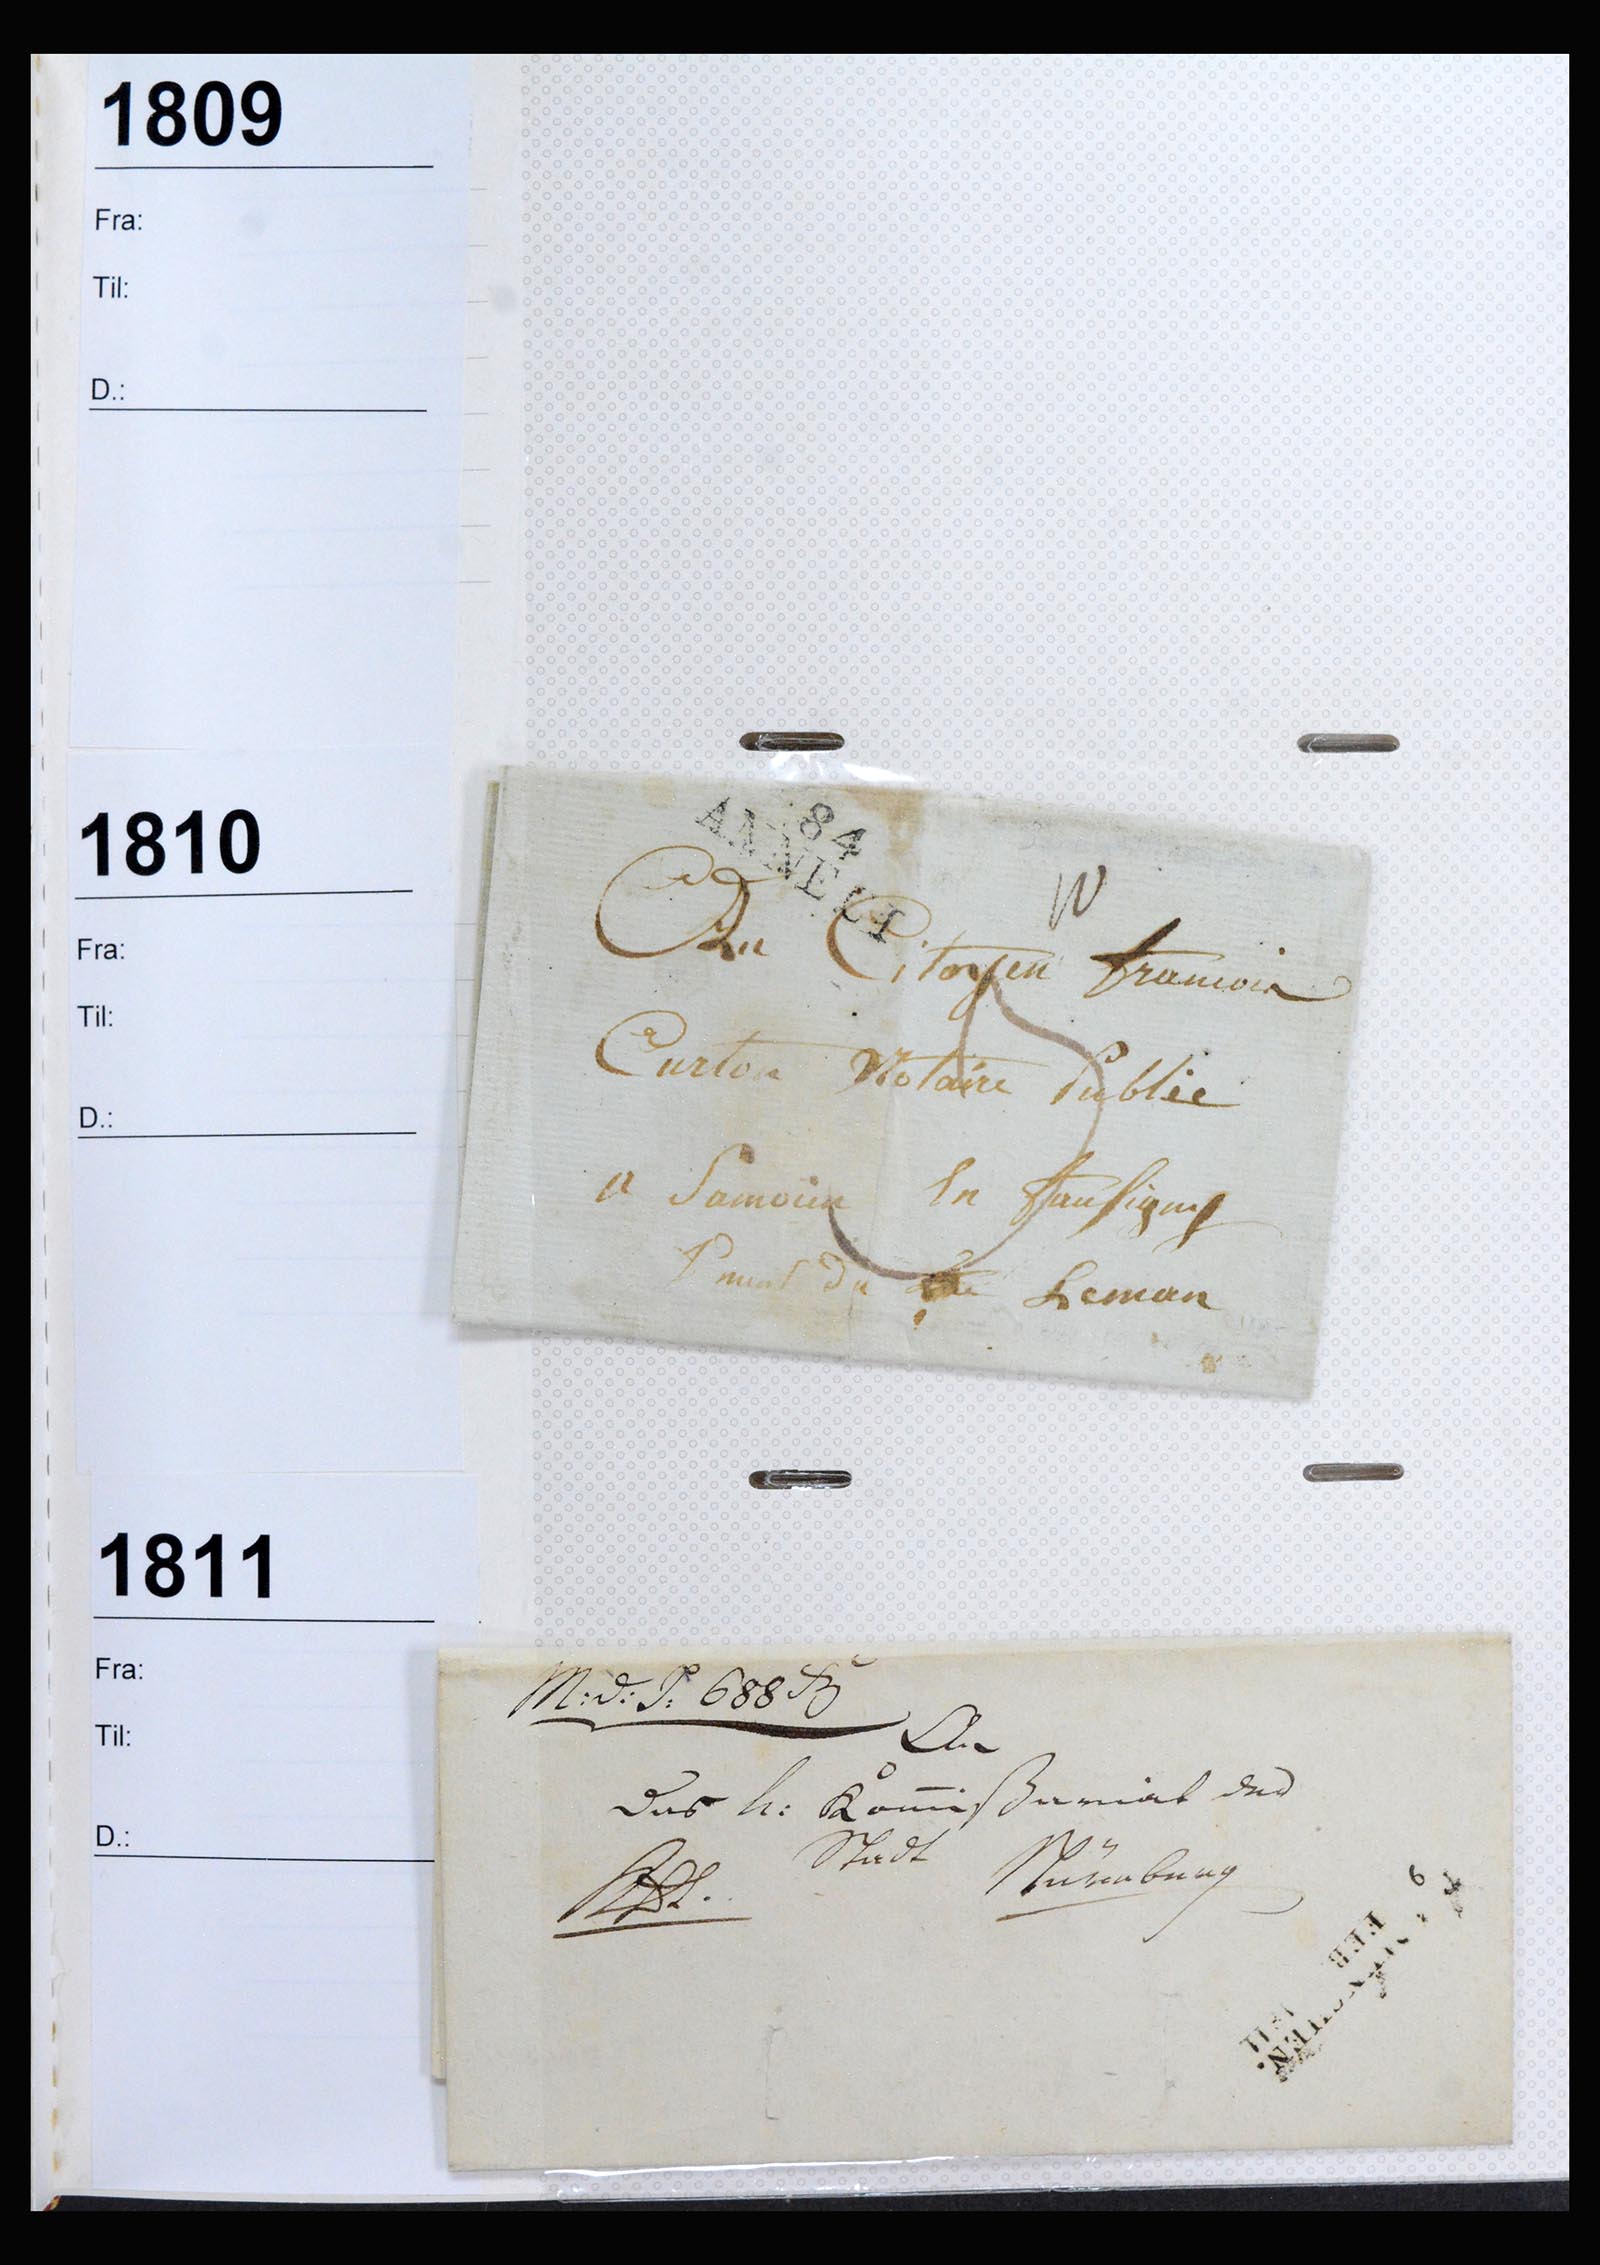 1809
Fra:
Til:
D.:
1810
Fra:
Til:
D.:
84
ANNECI
Au Citoyen francois
Curton Notaire Public
a Samoin en fausigny
du Leman
1811
Fra:
Til:
D.:
M: d: J: 688
An
das k: Kommißariat der
Stadt Nürnberg
6
FEB
1811